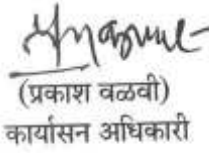 (प्रकाश वळवी)
कार्यासन अधिकारी